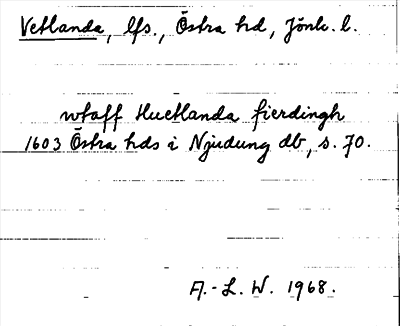 Vetlanda, lfs., Östra hd, Jönk. l.
wtaff Huetlanda fierdingh
1603 Östra hds i Njudung db, s. 70.
A.-L. W. 1968.